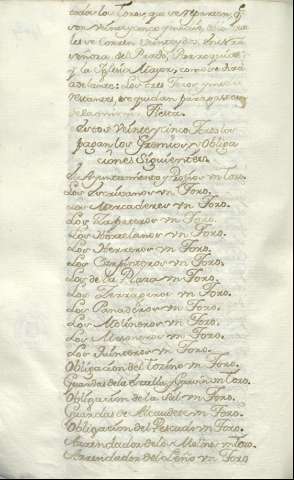 todos los Toros, que se reparten, q.
son Veinte y cinco y medio, de los qua
les se corren Veinte y dos, en Nra
señora del Prado, Parroquias
y la Iglesia Mayor, como se dirà
adelante: Los tres Toros y medio
restantes, se quedan para gasto
de la misma Fiesta.
Estos Veinte y cinco Toros los
pagan los Gremios, y Obliga
ciones siguientes.
El Ayuntamiento y Propios vn Toro.
Los Escribanos vn Toro.
Los Mercaderes vn Toro.
Los Zapateros vn Toro.
Los Hortelanos vn Toro.
Los Herreros vn Toro.
Los Carpinteros vn Toro.
Los de la Plaza vn Toro.
Los vn Toro.
Los Panaderos vn Toro.
Los Molineros vn Toro.
Los Mesoneros vn Toro.
Los vn Toro.
Obligacion del tozino vn Toro.
Guardas de la vn Toro.
Obligacion de la Sal vn Toro.
Guardas de vn Toro.
Obligacion del Pescado vn Toro.
Arrendador de los Molinos vn Toro.
Arrendador del vn Toro